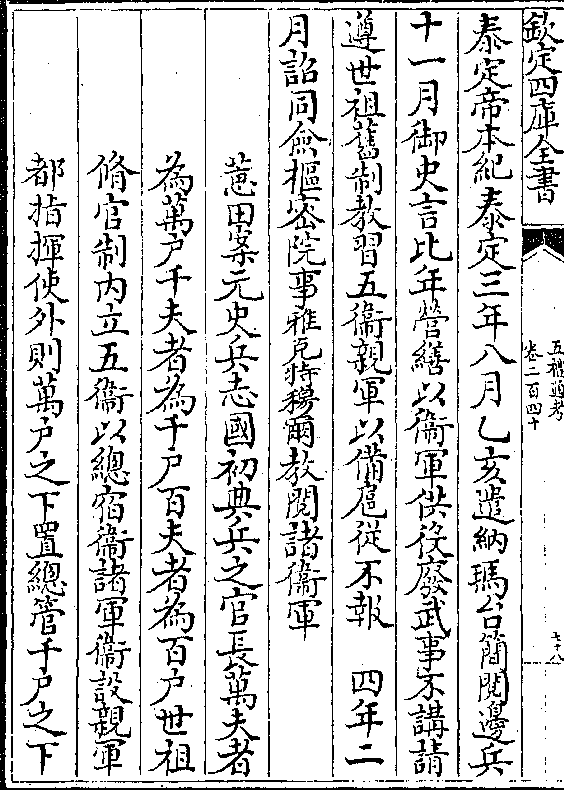 欽定四庫全書
五禮通考
卷二百四十
七十八
泰定帝本紀泰定三年八月乙亥遣納瑪台簡閲邊兵
十一月御史言比年營繕以衞軍供役廢武事不講請
遵世祖舊制教習五衞親軍以備扈從不報　四年二
月詔同僉樞密院事雅克特穆爾教閲諸衞軍
蕙田案元史兵志國初典兵之官長萬夫者
為萬户千夫者為千户百夫者為百户世祖
脩官制内立五衞以總宿衞諸軍衞設親軍
都指揮使外則萬户之下置總管千户之下